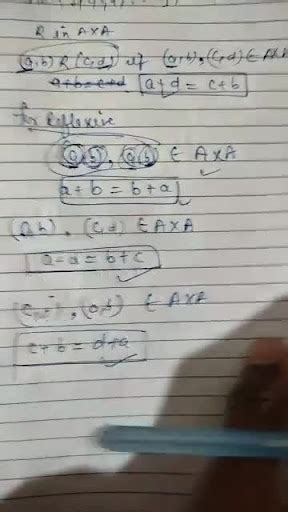 R in A×A
(a,b) R (c,d) if (a,b), (c,d) ∈ A×A
a+b = c+d a+d = c+b
for Reflexive
(a b), (a b) ∈ A×A
a+b = b+a
(a,b), (c,d) ∈ A×A
a=d = b+c
(a,b) ∈ A×A
c+b = d+a